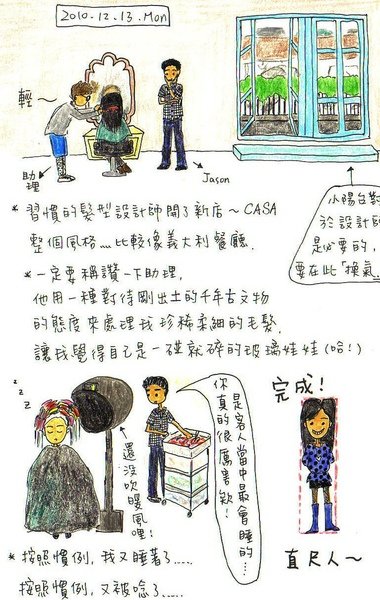 2010.12.13.Mon
輕～
助理
Jason
小陽台對
於設計師
是必要的,
要在此「換氣」
* 習慣的髮型設計師開了新店～CASA
整個風格……比較像義大利餐廳.
*一定要稱讚一下助理.
他用一種對待剛出土的千年古文物
的態度來處理我珍稀柔細的毛髮.
讓我覺得自己是一碰就碎的玻璃娃娃(哈!)
z z z
還沒吹暖風哩!
你真的很厲害欸!
是客人當中最會睡的…
完成!
直尺人～
* 按照慣例,我又睡著了……
按照慣例,又被唸了……